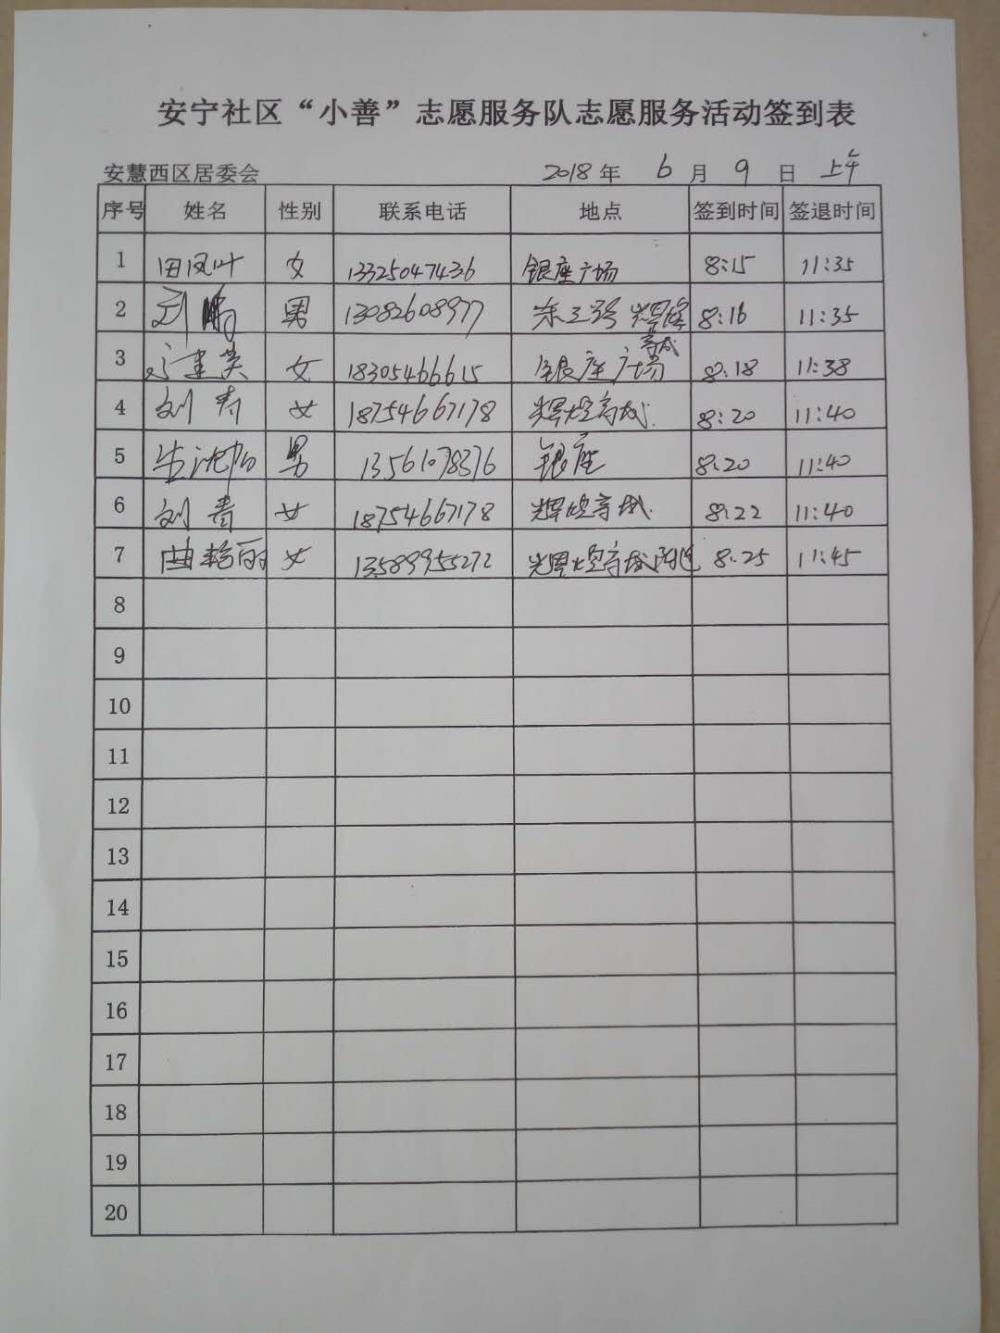 安宁社区“小善”志愿服务队志愿服务活动签到表
安慧西区居委会 2018年 6月 9日 上午
序号 姓名 性别 联系电话 地点 签到时间 签退时间
1 田凤叶 女 13325047436 银座广场 8:15 11:35
2 刘 男 13082608977 东三路 辉煌商城 8:16 11:35
3 女 18305466615 银座广场 8:18 11:38
4 刘青 女 18754667178 辉煌商城 8:20 11:40
5 男 13561078376 银座 8:20 11:40
6 刘青 女 18754667178 辉煌商城 8:22 11:40
7 曲艳丽 女 13589955272 辉煌商城附近 8:25 11:45
8
9
10
11
12
13
14
15
16
17
18
19
20